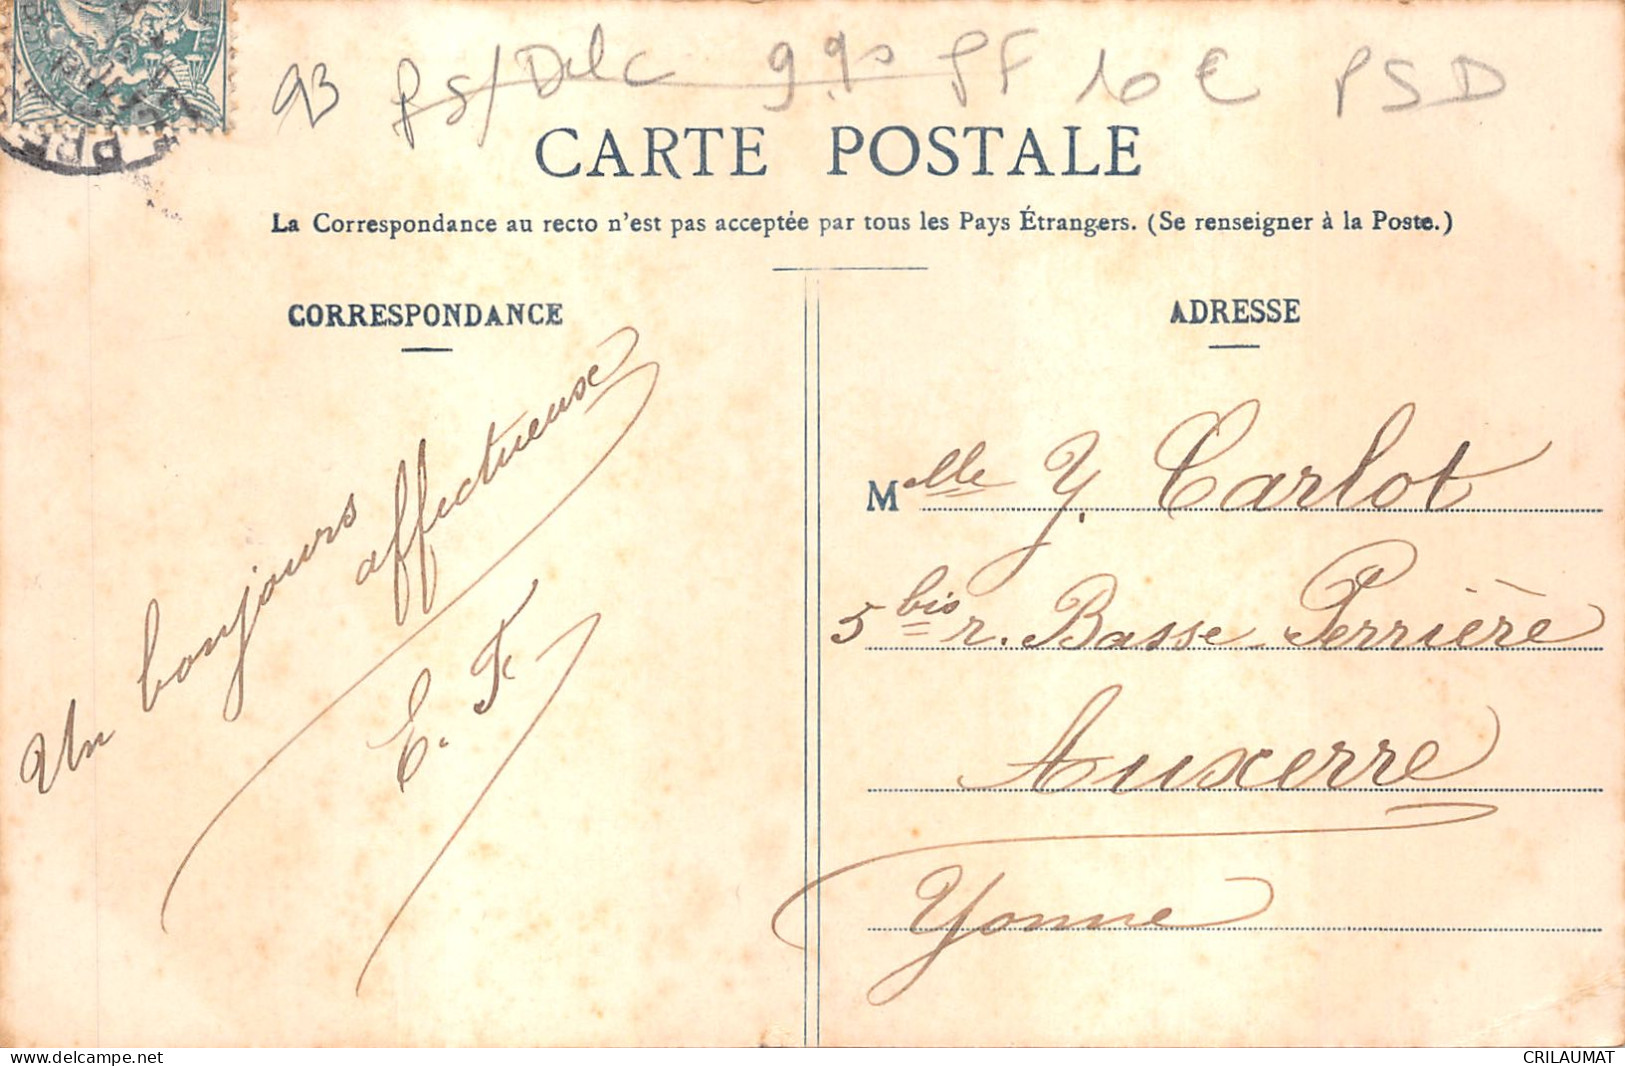 93 PS/Delc 990 PF 10 € PSD
CARTE POSTALE
La Correspondance au recto n'est pas acceptée par tous les Pays Étrangers. (Se renseigner à la Poste.)
CORRESPONDANCE
Un bonjours
affectueuse
E. F.
ADRESSE
Melle Y. Carlot
5 bis r. Basse Perrière
Auxerre
Yonne
www.delcampe.net
CRILAUMAT